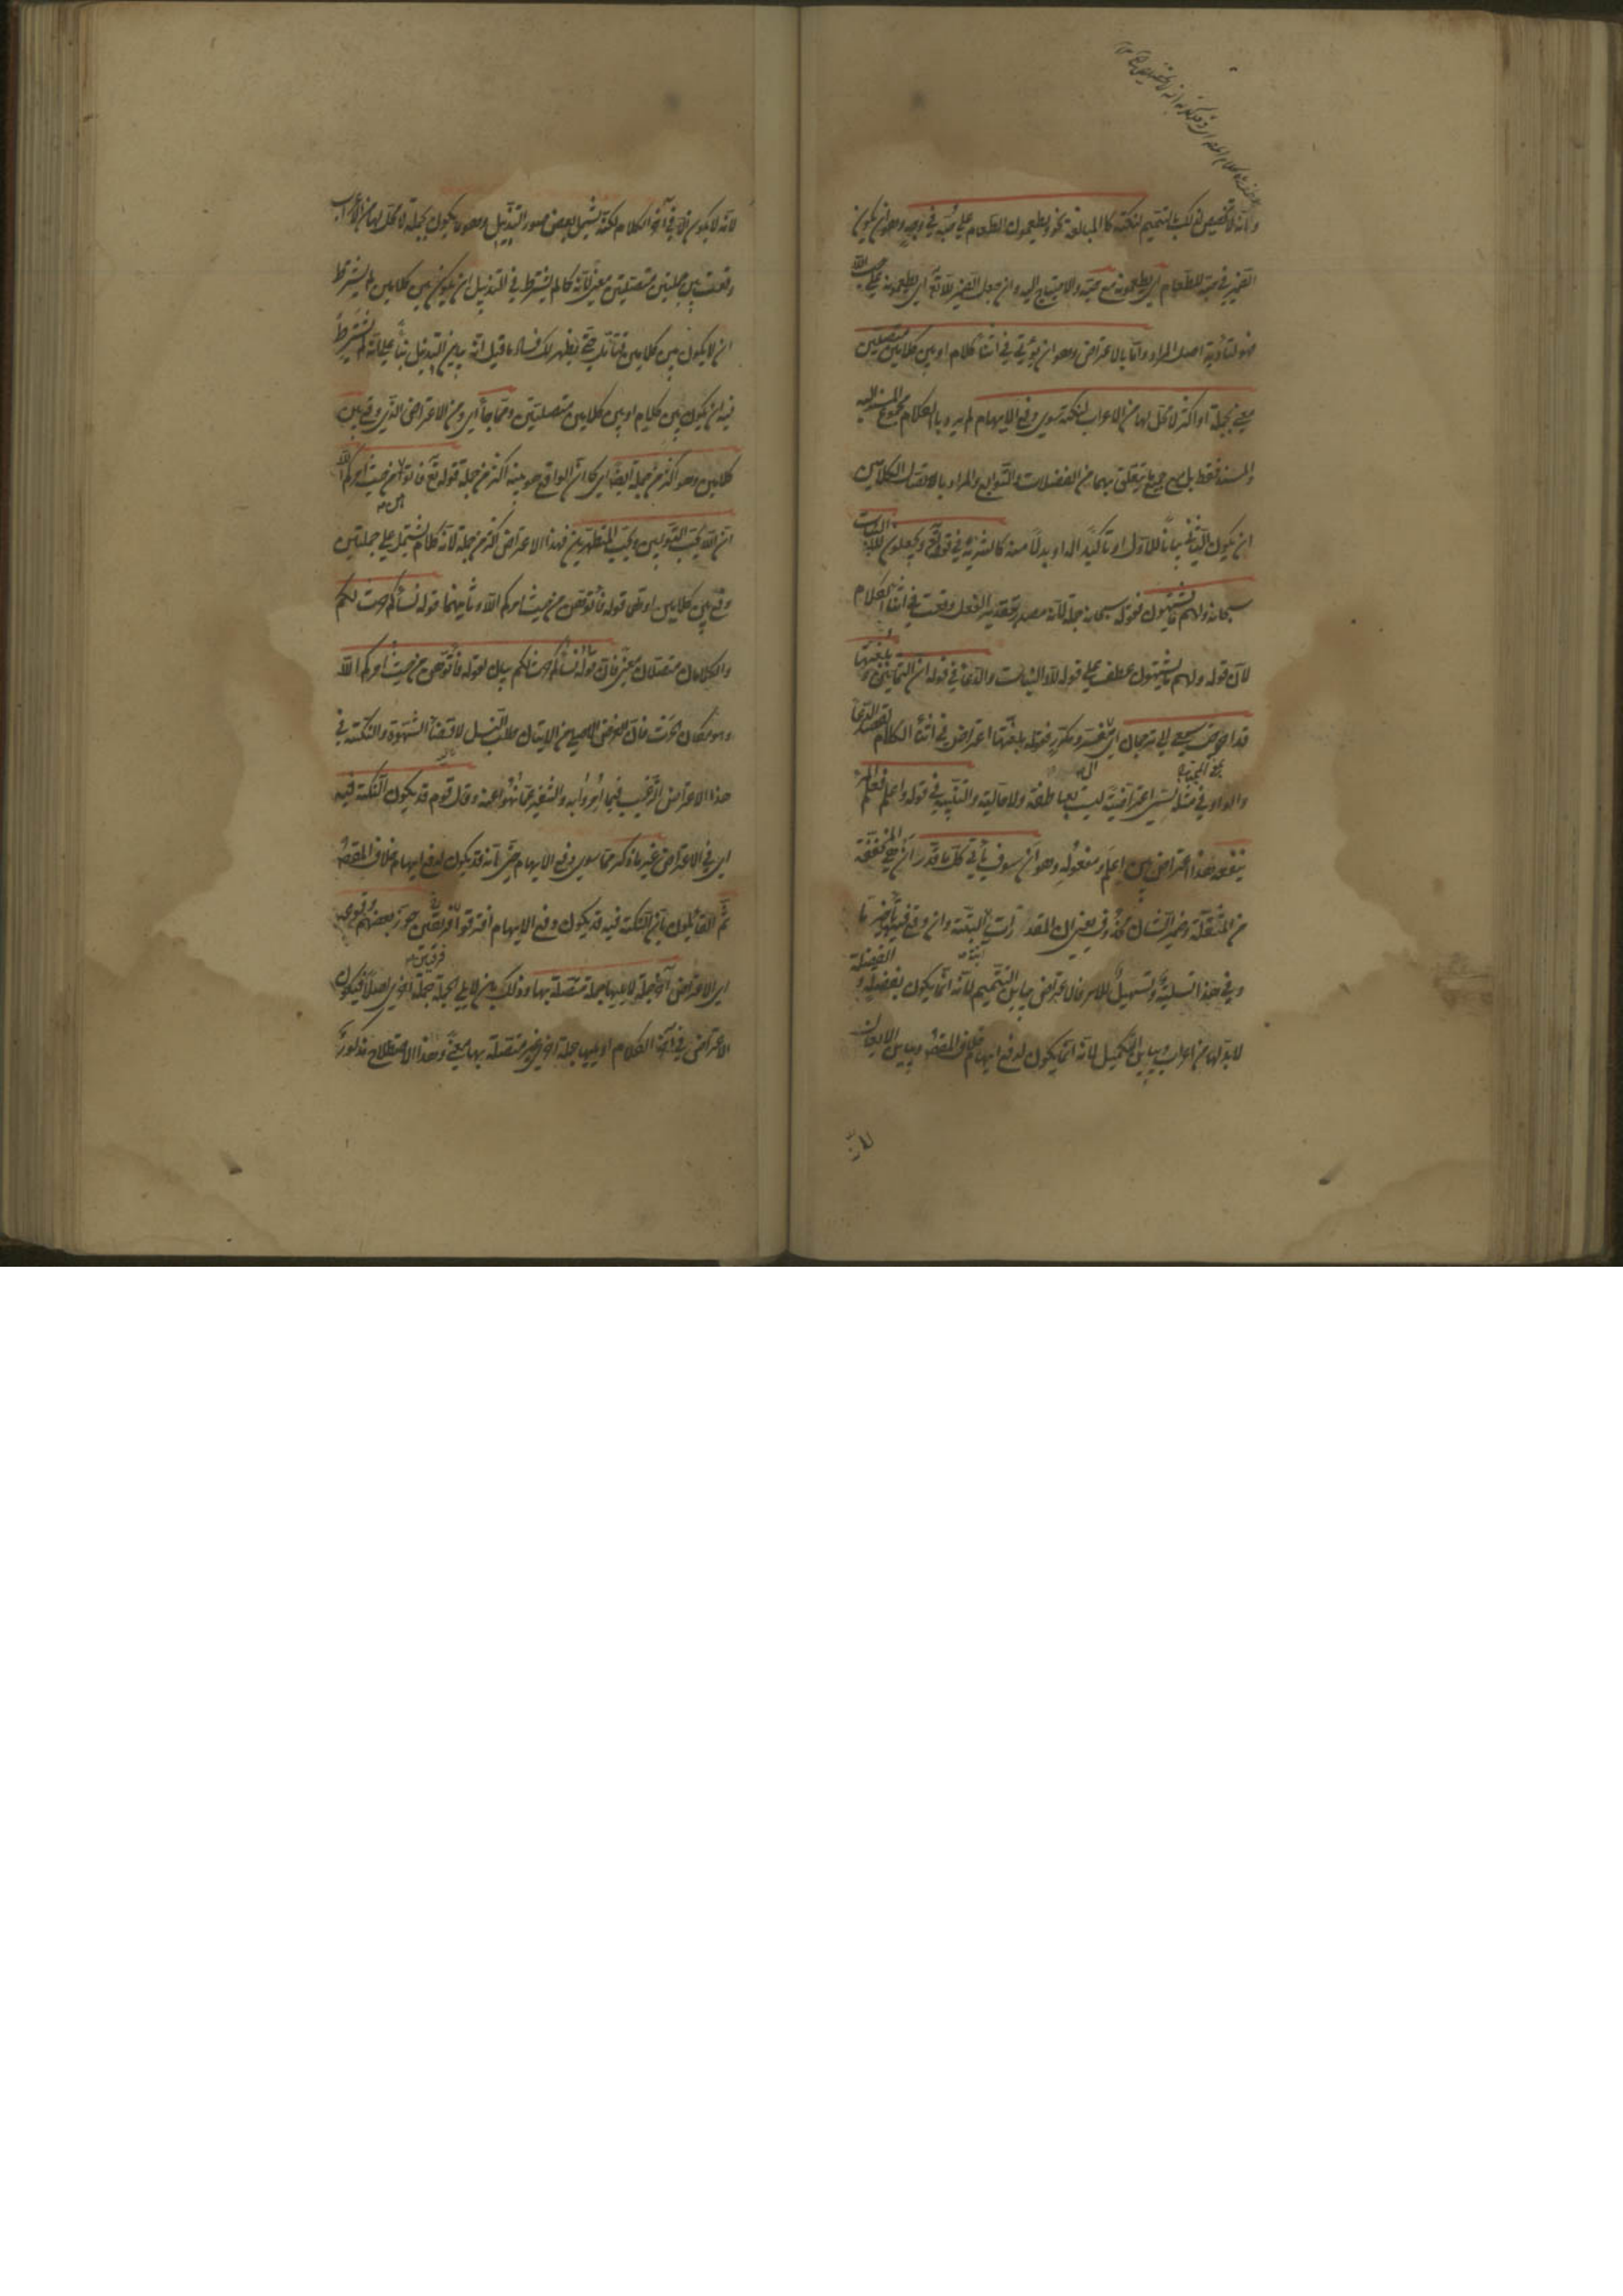 وانه لا تخصيص لذلك بالتتميم لنكتة كالمبالغة نحو ويطعمون الطعام على حبه في وجه وهو ان يكون
الضمير في حبه للطعام اي يطعمونه مع حبه والاحتياج اليه وان جعل الضمير لله تع اي يطعمونه على حب الله
فهو لتأدية اصل المراد واما بالاعتراض وهو ان يؤتى في اثناء كلام او بين كلامين متصلين
معنى بجملة او اكثر لا محل لها من الاعراب لنكتة سوى دفع الايهام لم يرد بالكلام مجموع المسند اليه
والمسند فقط بل مع جميع ما يتعلق بهما من الفضلات والتوابع والمراد بالاتصال الكلامين
ان يكون الثاني بيانا للاول او تاكيدا له او بدلا منه كالتنزيه في قوله تع ويجعلون لله البنات
سبحانه ولهم ما يشتهون فقوله سبحانه جملة لانه مصدر بتقدير الفعل وقعت في اثناء الكلام
لان قوله ولهم ما يشتهون عطف على قوله لله البنات والدعاء في قوله ان الثمانين وبلغتها
قد احوجت سمعي الى ترجمان اي مفسر ومكرر فقوله بلغتها اعتراض في اثناء الكلام لقصد الدعاء
والواو في مثله تسمى اعتراضية ليست بعاطفة ولا حالية والتنبيه في قوله واعلم فعلم المرء
ينفعه هذا اعتراض بين اعلم ومفعوله وهو ان سوف يأتي كل ما قدرا ان هي المخففة
من المثقلة وضمير الشان محذوف يعني ان المقدر آت البتة وان وقع فيه تأخير ما
وفي هذا تسلية وتسهيل للامر فالاعتراض يباين التتميم لانه انما يكون بفضلة والفضلة
لا بد لها من اعراب ويباين التكميل لانه انما يكون لدفع ايهام خلاف المقصود ويباين الايغال
لانه لا يكون الا في آخر الكلام لكنه يشمل بعض صور التذييل وهو ما يكون بجملة لا محل لها من الاعراب
وقعت بين جملتين متصلتين معنى لانه كما لم يشترط في التذييل ان يكون بين كلامين لم يشترط
ان لا يكون بين كلامين فتأمل حتى يظهر لك فساد ما قيل انه يباين التذييل بناء على انه لم يشترط
فيه ان يكون بين كلام او بين كلامين متصلين ومما جاء اي ومن الاعتراض الذي وقع بين
كلامين وهو اكثر من جملة ايضا اي كما ان الواقع هو بينه اكثر من جملة قوله تع فأتوهن من حيث امركم الله
ان الله يحب التوابين ويحب المتطهرين فهذا الاعتراض اكثر من جملة لانه كلام يشتمل على جملتين
وقع بين كلامين اولهما قوله فأتوهن من حيث امركم الله وثانيهما قوله نساؤكم حرث لكم
والكلامان متصلان معنى فان قوله نساؤكم حرث لكم بيان لقوله فأتوهن من حيث امركم الله
وهو مكان الحرث فان الغرض الاصلي من الاتيان طلب النسل لا قضاء الشهوة والنكتة في
هذا الاعتراض الترغيب فيما امروا به والتنفير عما نهوا عنه وقال قوم قد يكون النكتة فيه
اي في الاعتراض غير ما ذكر مما سوى دفع الايهام حتى انه قد يكون لدفع ايهام خلاف المقصود
ثم القائلون بان النكتة فيه قد يكون دفع الايهام افترقوا فرقتين جوز بعضهم وقوعه
اي الاعتراض آخر جملة لا يليها جملة متصلة بها وذلك بان لا يلي الجملة جملة اخرى اصلا فيكون
الاعتراض في آخر الكلام او يليها جملة اخرى غير متصلة بها معنى وهذا الاصطلاح مذكور